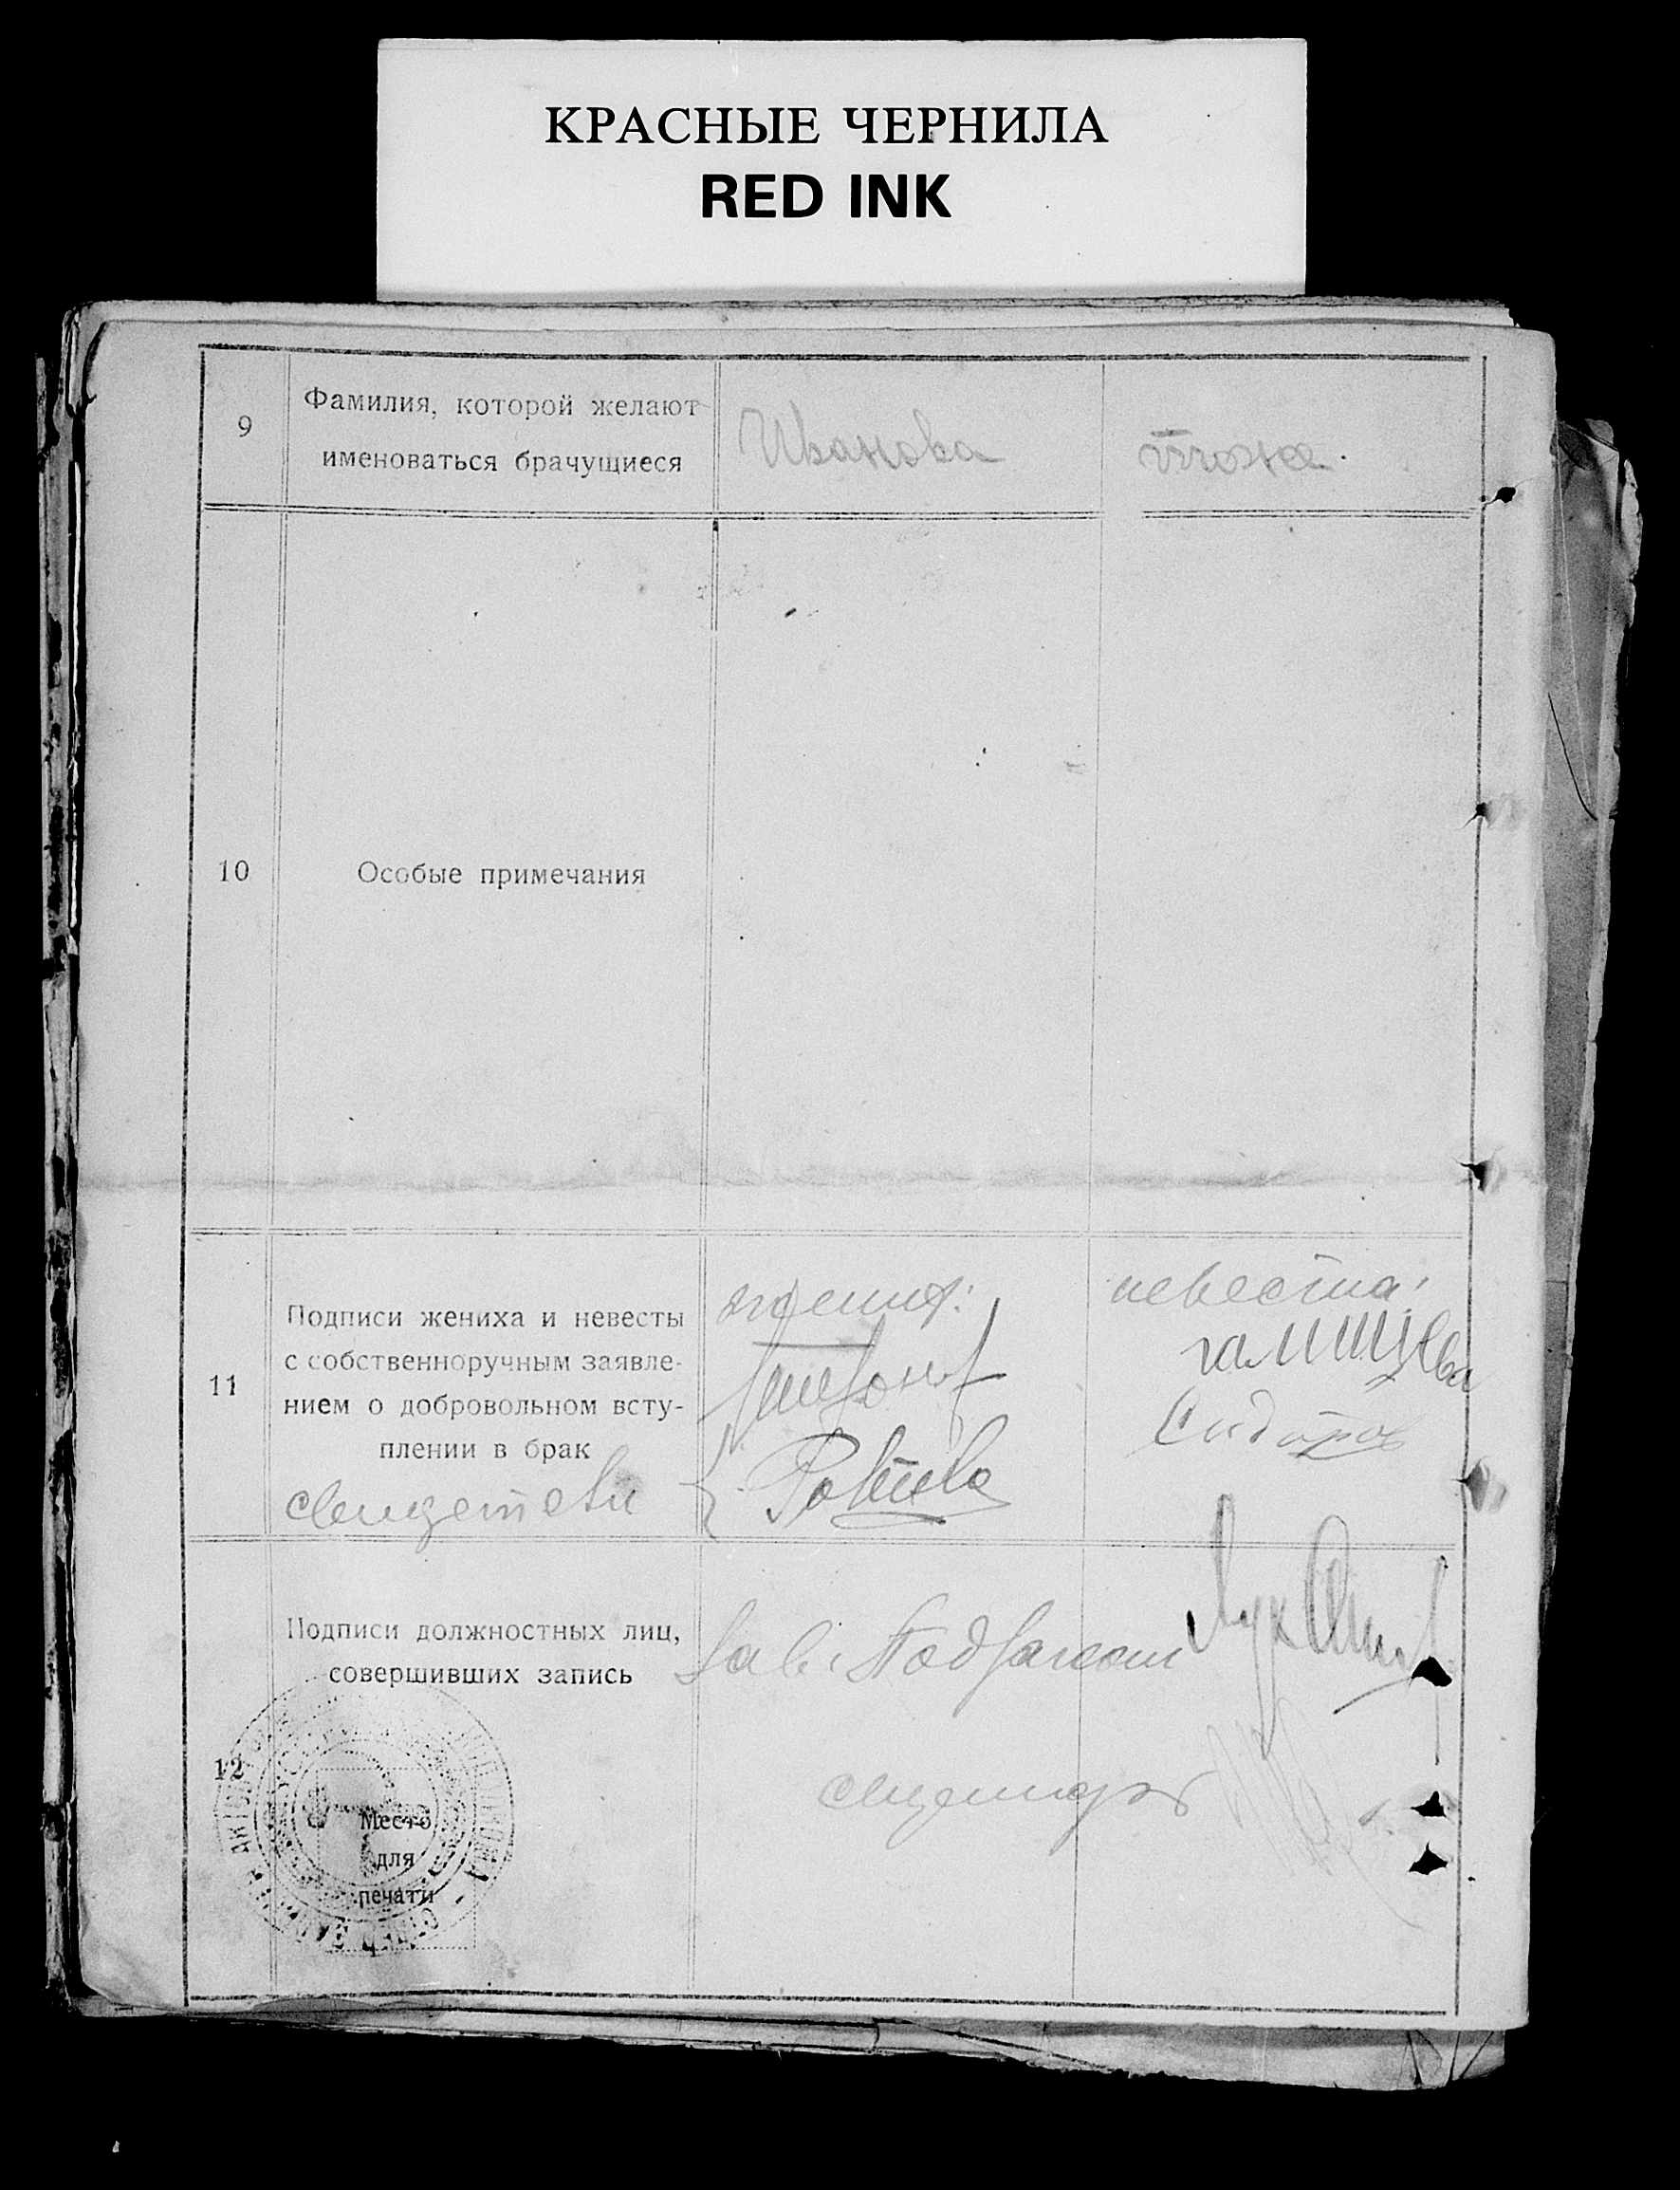 КРАСНЫЕ ЧЕРНИЛА
RED INK
9
Фамилия, которой желают
именоваться брачущиеся
Иванова
тоже.
10
Особые примечания
11
Подписи жениха и невесты
с собственноручным заявле-
нием о добровольном всту-
плении в брак
жених:
невеста:
Сидоров
12
Подписи должностных лиц,
совершивших запись
Место
для
печати